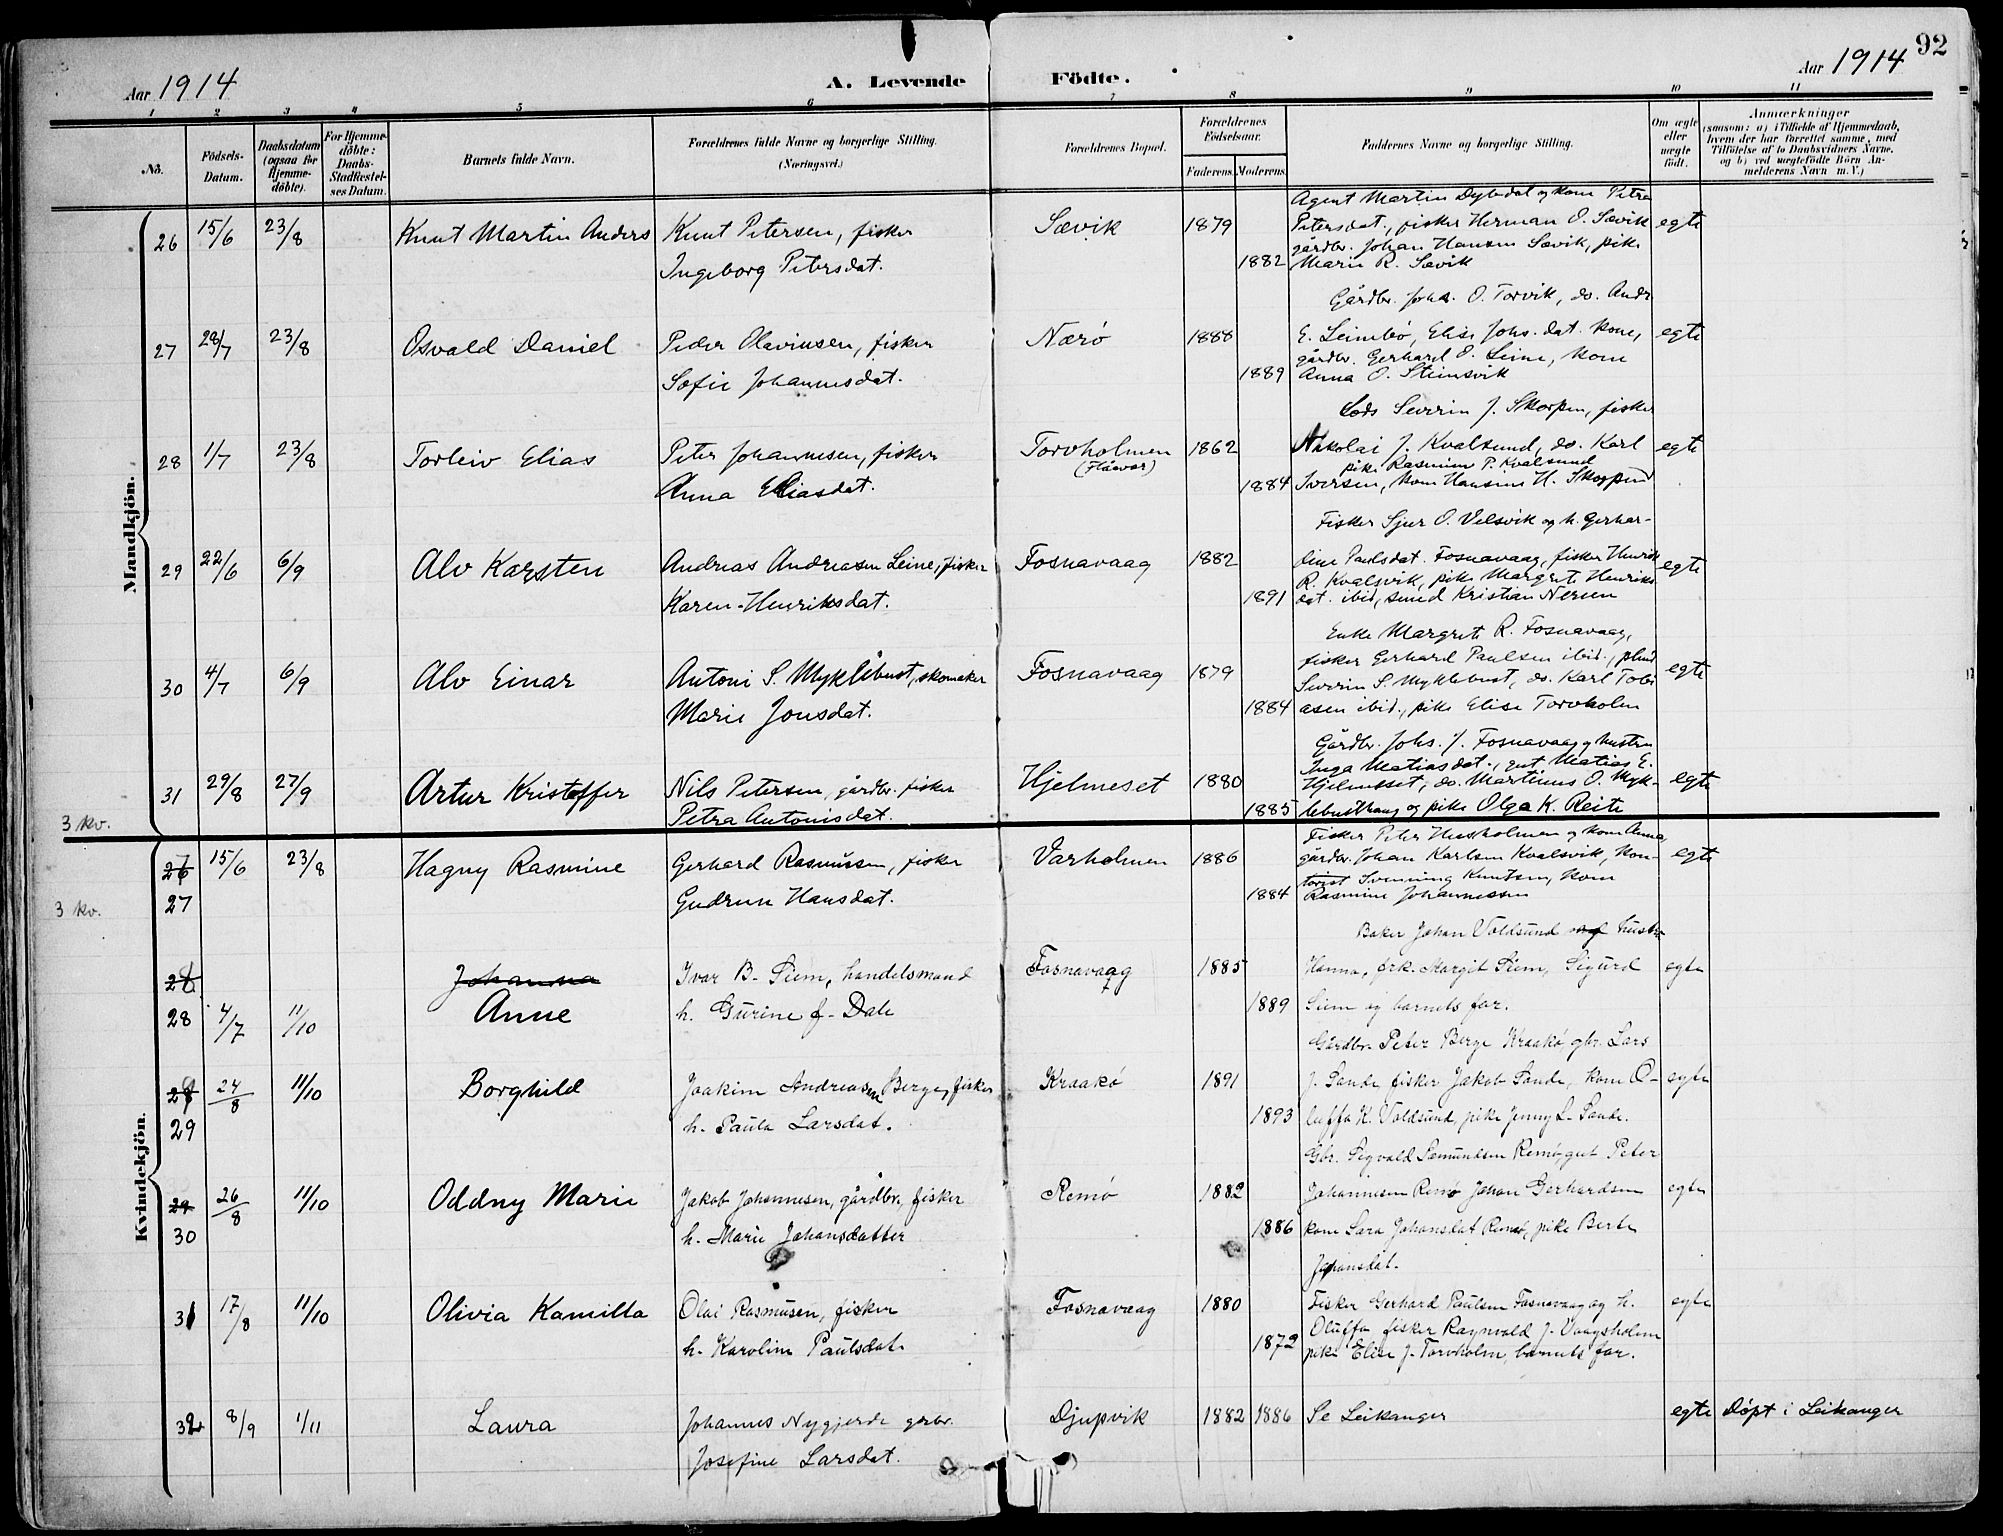 92
Aar 1914
A. Levende Födte.
Aar 1914
1 2 3 4 5 6 7 8 9 10 11
No.
Födsels-Datum.
Daabsdatum (ogsaa for Hjemme-döbte).
For Hjemme-döbte: Daabs-Stadfæstelses Datum.
Barnets fulde Navn.
Forældrenes fulde Navne og borgerlige Stilling. (Næringsvei.)
Forældrenes Bopæl.
Forældrenes Födselsaar.
Faderens. Moderens.
Faddernes Navne og borgerlige Stilling.
Om ægte eller uægte födt.
Anmærkninger
(saasom: a) i Tilfælde af Hjemmedaab, hvem der har forrettet samme, med Tilföielse af to Daabsvidners Navne, og b) ved uægtefödte Börn Anmelderens Navn m. V.)
Mandkjön.
26 15/6 23/8 Knut Martin Anders Knut Petersen, fisker Sævik 1879 egte
Ingeborg Petersdat. 1882
Agent Martin Dybdal og kone Petra
Petersdat., fisker Herman O. Sævik
gårdbr. Johan Hansen Sævik, pike
Marie R. Sævik
27 28/7 23/8 Osvald Daniel Peder Olavinsen, fisker Nærø 1888 egte
Sofie Johannesdat. 1889
Gårdbr. Johs. O. Torvik, do. Andr.
E. Leinebø, Elise Johs.dat. kone,
gårdbr. Gerhard O. Leine, kone
Anna O. Steinsvik
28 1/7 23/8 Torleiv Elias Peter Johannesen, fisker Torvholmen (Flåvær) 1862 egte
Anna Eliasdat. 1884
Lods Severin J. Skorpen, fisker
Nikolai J. Kvalsund, do. Karl
pike Rasmine P. Kvalsund
Iversen, kone Hansine H. Skorpen
29 22/6 6/9 Alv Karsten Andreas Andreasen Leine, fisker Fosnavaag 1882 egte
Karen Henriksdat. 1891
Fisker Sjur O. Velsvik og h. Gerhar-
dine Paulsdat. Fosnavaag, fisker Henrik
R. Kvalsvik, pike Margrete Henriks
dat. ibid, smed Kristian Nersen
30 4/7 6/9 Alv Einar Antoni S. Myklebust, skomaker Fosnavaag 1879 egte
Marie Jonsdat. 1884
Enke Margrete R. Fosnavaag,
fisker Gerhard Paulsen ibid.,
Severin S. Myklebust, do. Karl Tobi
asen ibid., pike Elise Torvholm
31 29/8 27/9 Artur Kristoffer Nils Petersen, gårdbr. fisker Hjelmeset 1880 egte
Petra Antonisdat. 1885
Gårdbr. Johs. J. Fosnavaag og hustru
Inga Matiasdat., gut Matias E.
Hjelmeset, do. Martinus O. Myk-
lebusthaug og pike Olga K. Reite
3 kv.
3 kv.
Kvindekjön.
26 27 15/6 23/8 Hagny Rasmine Gerhard Rasmussen, fisker Varholmen 1886 egte
Gudrun Hansdat. 1884
Fisker Peter Husholmen og kone Anna,
gårdbr. Johan Karlsen Kvalsvik, kon-
torist Svenning Knutsen, kone
Rasmine Johannessen
28 4/7 11/10 Johanna Anne Ivar B. Siem, handelsmand Fosnavaag 1885 egte
h. Gurine f. Dale 1889
Baker Johan Voldsund og hustru
Hanna, frk. Margit Siem, Sigurd
Siem og barnets far.
29 24/8 11/10 Borghild Joakim Andreasen Berge, fisker Kraakø 1891 egte
h. Paula Larsdat. 1893
Gårdbr. Peter Berge Kraakø, gbr. Lars
J. Sande, fisker Jakob Sande, kone O-
luffa K. Voldsund, pike Jenny L. Sande.
29 30 26/8 11/10 Oddny Marie Jakob Johannesen, gårdbr., fisker Remø 1882 egte
h. Marie Johansdatter 1886
Gbr. Sigvald Semundsen Remø, gut Peter
Johannesen Remø Johan Gerhardsen
kone Sara Johansdat Remø, pike Berte
Johansdat.
31 17/8 11/10 Olivia Kamilla Olai Rasmusen, fisker Fosnavaag 1880 egte
h. Karoline Paulsdat. 1872
Fisker Gerhard Paulsen Fosnavaag og h.
Oluffa fisker Ragnvald J. Vaagsholm
pike Elise J. Torvholm, barnets far.
32 8/9 1/11 Laura Johannes Nygjerde grbr. Djupvik 1882 1886 Se Leikanger egte Døpt i Leikanger
Josefine Larsdat.